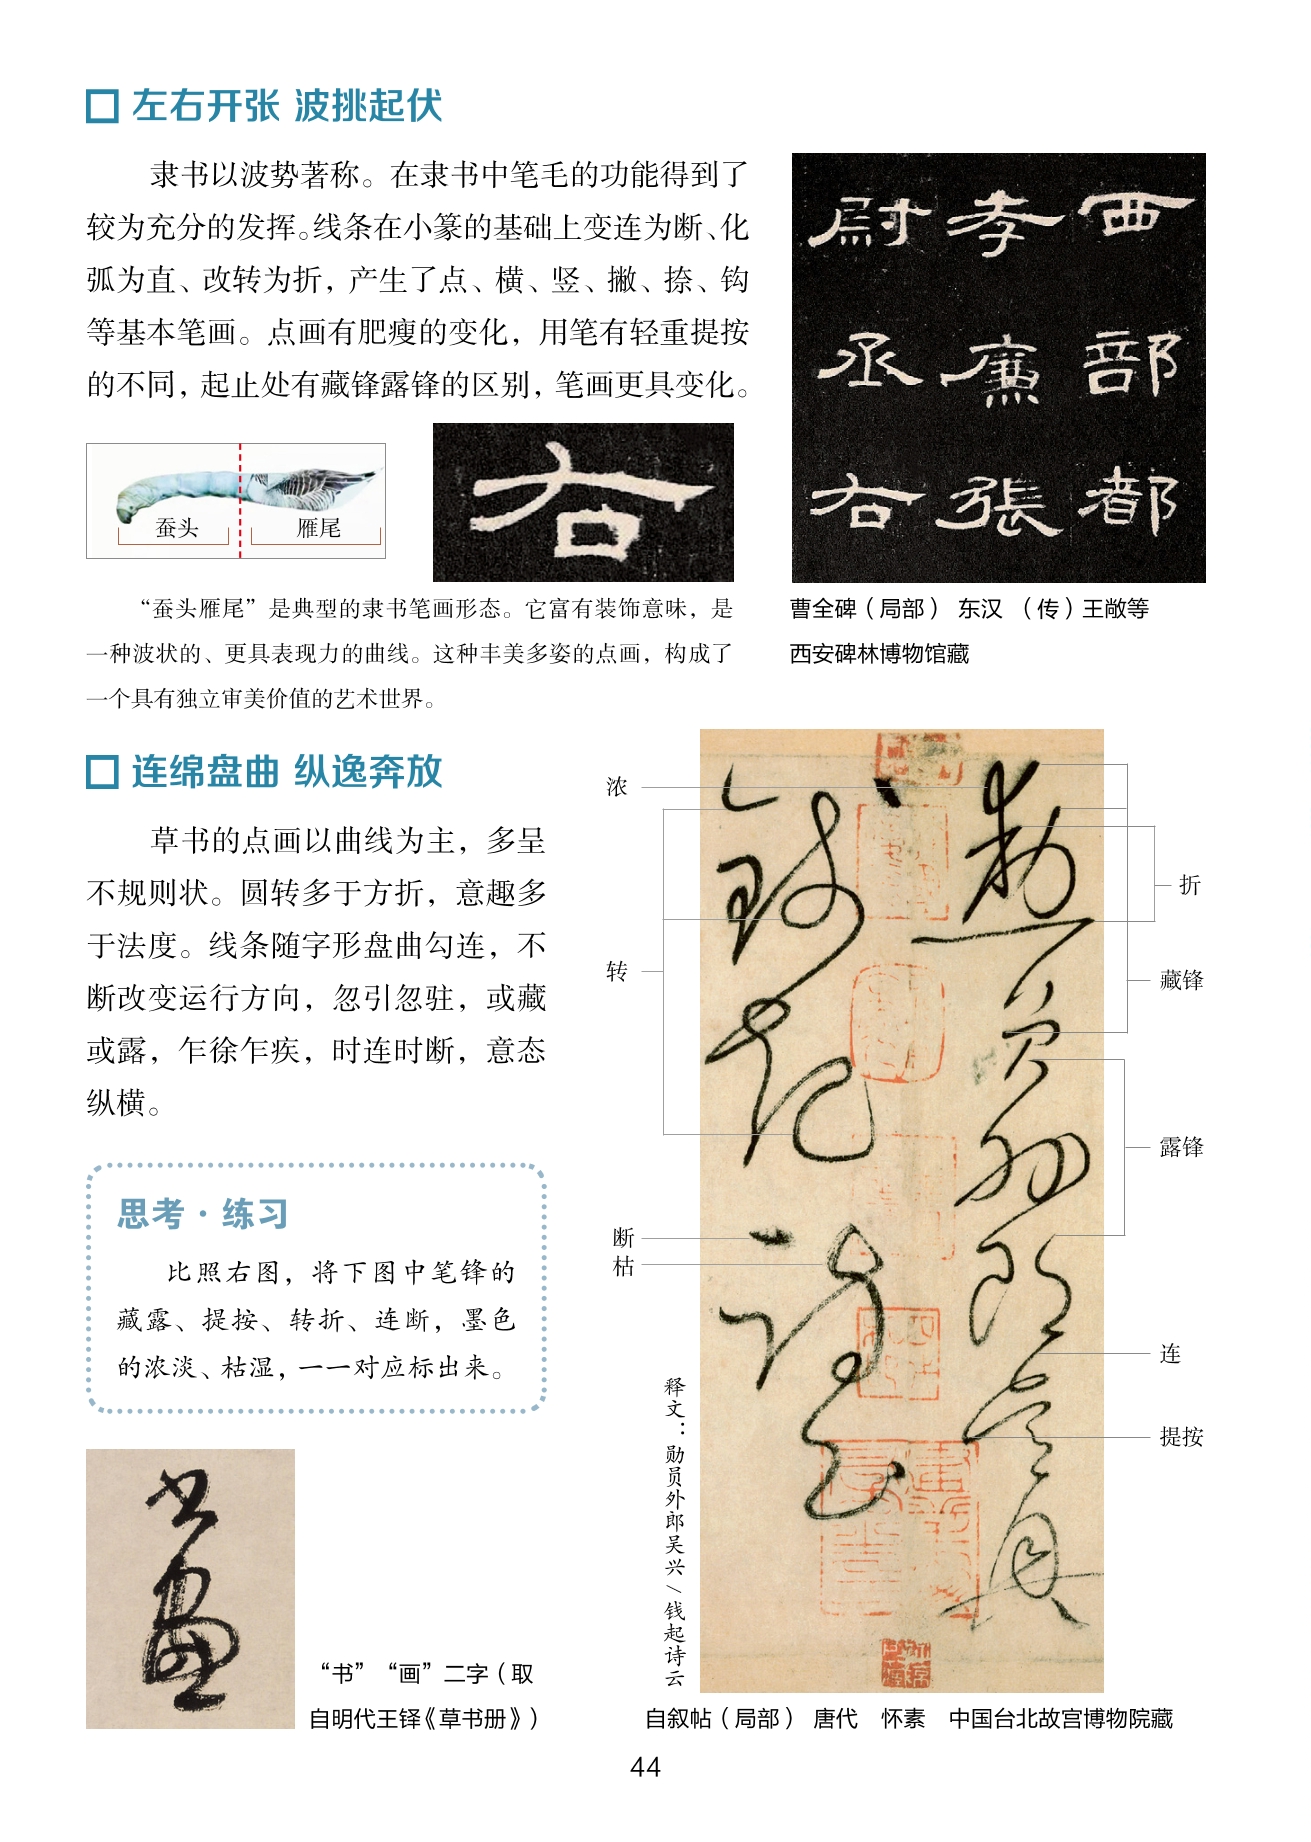 左右开张 波挑起伏
隶书以波势著称。在隶书中笔毛的功能得到了
较为充分的发挥。线条在小篆的基础上变连为断、化
弧为直、改转为折，产生了点、横、竖、撇、捺、钩
等基本笔画。点画有肥瘦的变化，用笔有轻重提按
的不同，起止处有藏锋露锋的区别，笔画更具变化。
蚕头 雁尾
右
“蚕头雁尾”是典型的隶书笔画形态。它富有装饰意味，是
一种波状的、更具表现力的曲线。这种丰美多姿的点画，构成了
一个具有独立审美价值的艺术世界。
西部都
孝廉張
尉丞右
曹全碑（局部） 东汉 （传）王敞等
西安碑林博物馆藏
连绵盘曲 纵逸奔放
草书的点画以曲线为主，多呈
不规则状。圆转多于方折，意趣多
于法度。线条随字形盘曲勾连，不
断改变运行方向，忽引忽驻，或藏
或露，乍徐乍疾，时连时断，意态
纵横。
思考·练习
比照右图，将下图中笔锋的
藏露、提按、转折、连断，墨色
的浓淡、枯湿，一一对应标出来。
書畫
“书”“画”二字（取
自明代王铎《草书册》）
浓
转
断
枯
折
藏锋
露锋
连
提按
勳員外郎吳興
錢起詩云
释文：勋员外郎吴兴/钱起诗云
自叙帖（局部） 唐代 怀素 中国台北故宫博物院藏
44